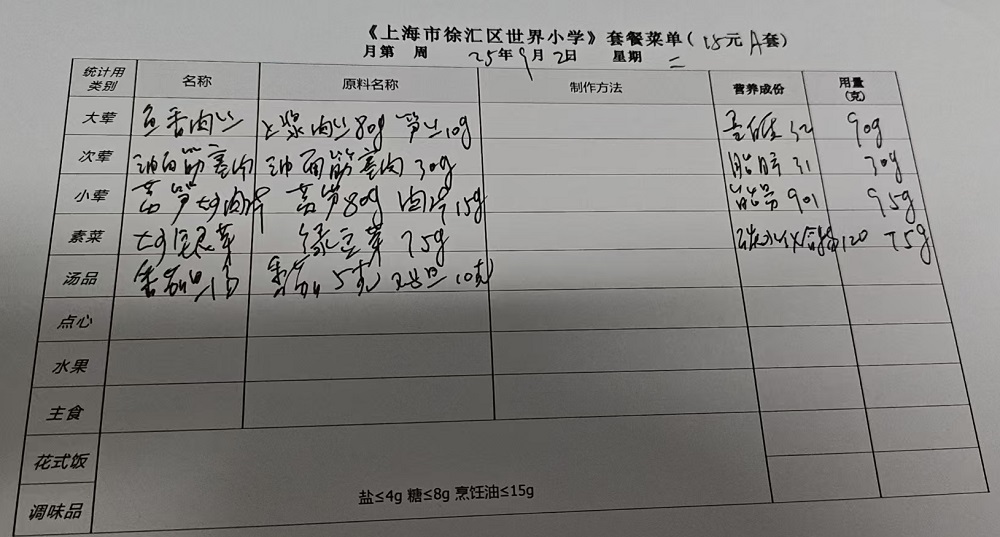 《上海市徐汇区世界小学》套餐菜单(18元A套)
月第 周 25年9月2日 星期 二
统计用类别 名称 原料名称 制作方法 营养成份 用量(克)
大荤 鱼香肉丝 上浆肉丝80g 笋丝10g 蛋白质32 90g
次荤 油面筋塞肉 油面筋塞肉30g 脂肪31 30g
小荤 茭笋炒肉片 茭笋80g 肉片15g 能量901 95g
素菜 炒绿豆芽 绿豆芽 75g 碳水化合物120 75g
汤品 5克 10克
点心
水果
主食
花式饭
调味品 盐≤4g 糖≤8g 烹饪油≤15g